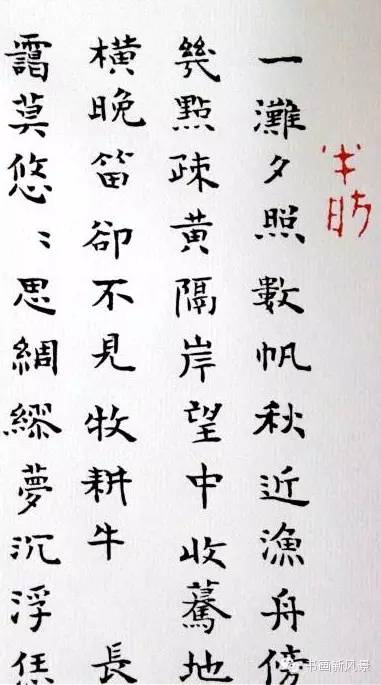 一灘夕照數帆秋近漁舟傍
幾點疎黃隔岸望中收驀地
橫晚笛卻不見牧耕牛 長
靄莫悠〻思綢繆夢沉浮恁
书画新风景